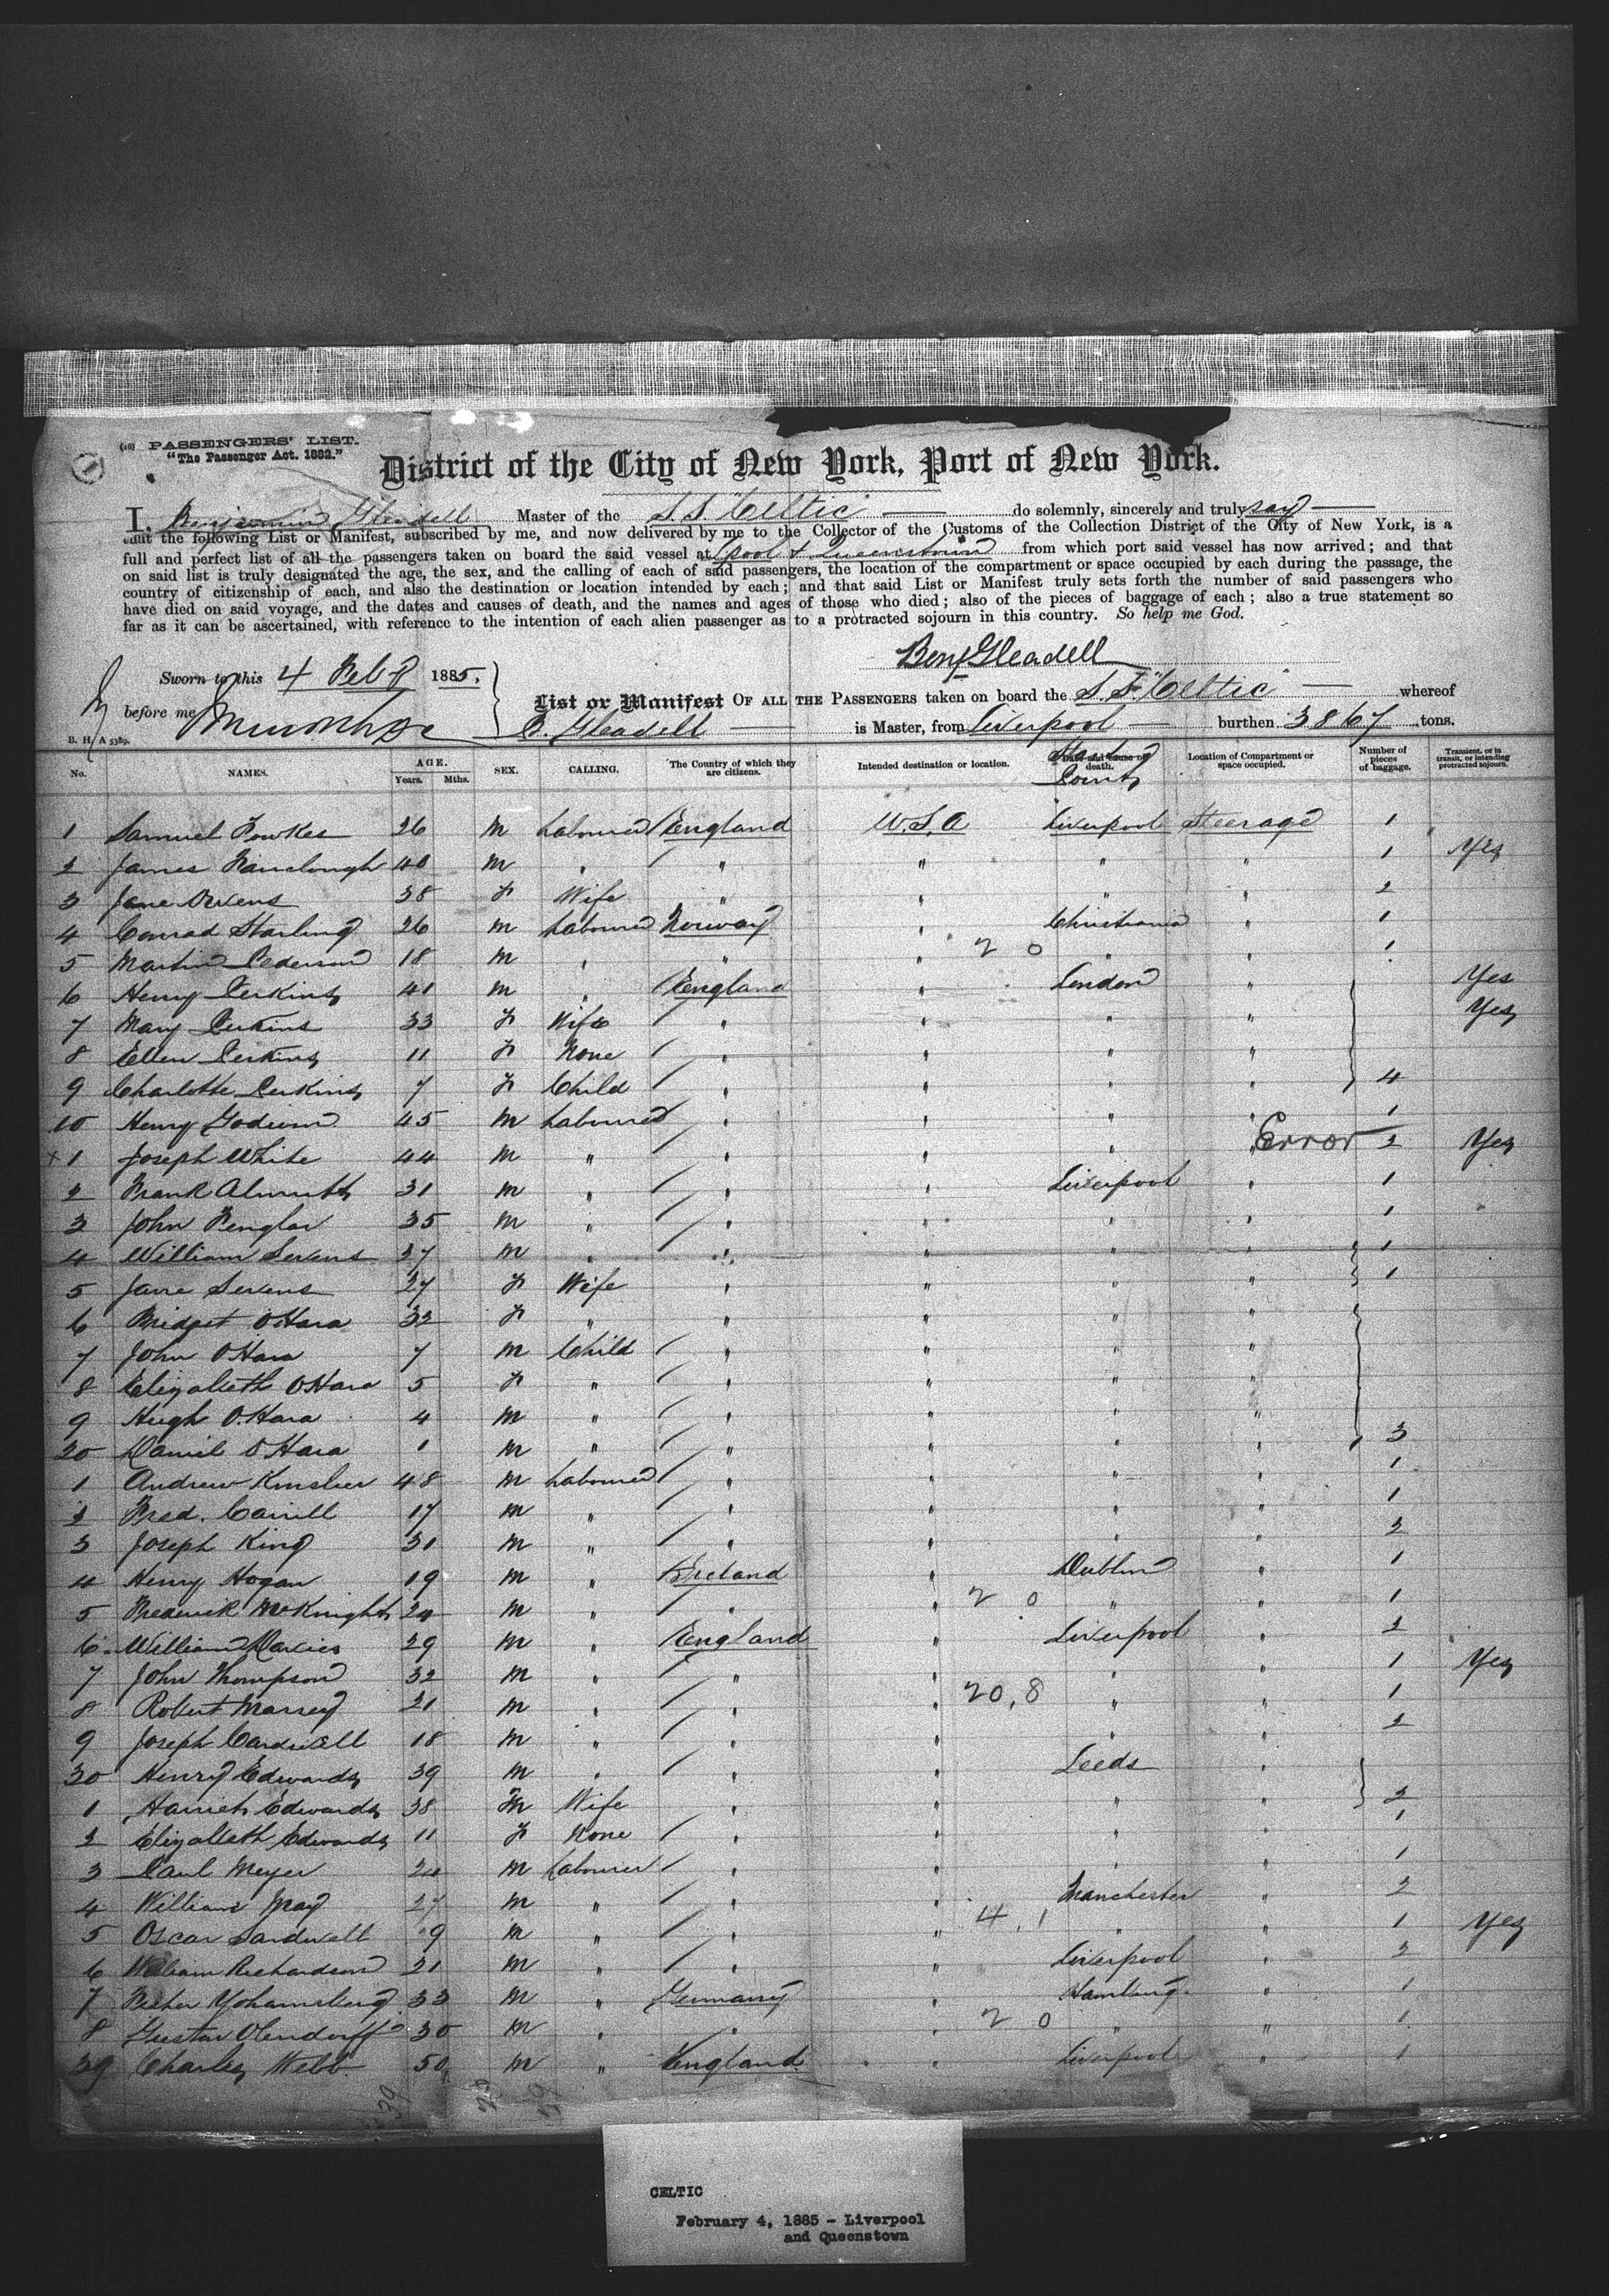 (18) PASSENGERS' LIST.
"The Passenger Act. 1882."
1
District of the City of New York, Port of New York.
I, Benjamin Gleadell Master of the S.S. "Celtic" do solemnly, sincerely and truly say
that the following List or Manifest, subscribed by me, and now delivered by me to the Collector of the Customs of the Collection District of the City of New York, is a
full and perfect list of all the passengers taken on board the said vessel at Lpool & Queenstown from which port said vessel has now arrived; and that
on said list is truly designated the age, the sex, and the calling of each of said passengers, the location of the compartment or space occupied by each during the passage, the
country of citizenship of each, and also the destination or location intended by each; and that said List or Manifest truly sets forth the number of said passengers who
have died on said voyage, and the dates and causes of death, and the names and ages of those who died; also of the pieces of baggage of each; also a true statement so
far as it can be ascertained, with reference to the intention of each alien passenger as to a protracted sojourn in this country. So help me God.
Benj Gleadell
Sworn to this 4 Feby 1885.
before me
List or Manifest OF ALL THE PASSENGERS taken on board the S.S. "Celtic" whereof
B. Gleadell is Master, from Liverpool burthen 3867 tons.
B. H. A 5389.
No. NAMES. AGE. Years. Mths. SEX. CALLING. The Country of which they are citizens. Intended destination or location. Date and cause of death. Starting County Location of Compartment or space occupied. Number of pieces of baggage. Transient, or in transit, or intending protracted sojourn.
1 Samuel Fowkes 26 M Labourer England U.S.A Liverpool Steerage 1
2 James Fairclough 40 M " " " " " 1 Yes
3 Jane Owens 38 F Wife " " " " 2
4 Conrad Starling 26 M Labourer Norway " Christiania " 1
5 Martin Pederson 18 M " " " 2 0 " " 1
6 Henry Perkins 41 M " England " London " Yes
7 Mary Perkins 33 F Wife " " " " Yes
8 Ellen Perkins 11 F None " " " "
9 Charlotte Perkins 7 F Child " " " " 4
10 Henry Godwin 45 M Labourer " " " " 1
+1 Joseph White 44 M " " " " " Error 2 Yes
2 Frank 31 M " " " Liverpool " 1
3 John 35 M " " " " " 1
4 William Sevens 37 M " " " " " 1
5 Jane Sevens 27 F Wife " " " " 1
6 Bridget O'Hara 32 F " " " " "
7 John O'Hara 7 M Child " " " "
8 Elizabeth O'Hara 5 F " " " " "
9 Hugh O'Hara 4 M " " " " "
20 Daniel O'Hara 1 M " " " " " 3
1 Andrew 48 M Labourer " " " " 1
2 Fred. 17 M " " " " " 1
3 Joseph King 31 M " " " " " 2
4 Henry Hogan 19 M " Ireland " Dublin " 1
5 Frederick McKnight 24 M " " " 2 0 " " 1
6 William Davies 29 M " England " Liverpool " 2
7 John Thompson 32 M " " " " " 1 Yes
8 Robert Massey 21 M " " " 20,8 " " 1
9 Joseph Cardwell 18 M " " " " " 2
30 Henry Edwards 39 M " " " Leeds "
1 Harriet Edwards 38 F Wife " " " " 2
2 Elizabeth Edwards 11 F None " " " " 1
3 Paul Meyer 24 M Labourer " " " " 1
4 William 27 M " " " Manchester " 2
5 Oscar 19 M " " " 4,1 " " 1 Yes
6 William Richardson 21 M " " " Liverpool " 2
7 33 M " Germany " Hamburg " 1
8 Gustav Olendorff 30 M " " " 2 0 " " 1
39 Charles Webb 50 M " England " Liverpool " 1
39
CELTIC
February 4, 1885 - Liverpool
and Queenstown